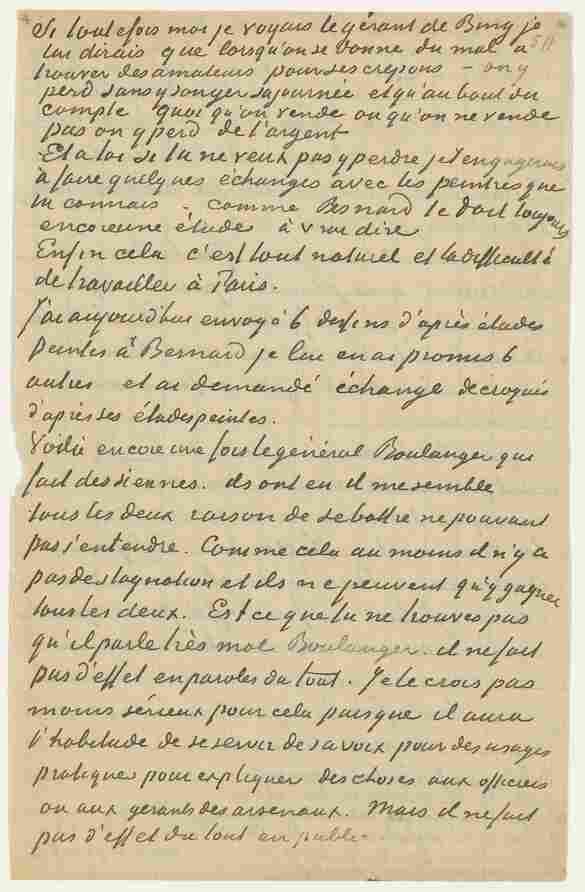 Si toutefois moi je voyais le gérant de Bing je
lui dirais que lorsqu'on se donne du mal à
trouver des amateurs pour ses crepons – on y
perd sans y songer sa journée et qu'au bout du
compte quoi qu'on vende ou qu'on ne vende
pas on y perd de l'argent
Et à toi si tu ne veux pas y perdre je t'engagerais
à faire quelques échanges avec les peintres que
tu connais – comme Bernard te doit toujours
encore une étude à vrai dire
Enfin cela c'est tout naturel et la difficulté
de travailler à Paris.
J'ai aujourd'hui envoyé 6 dessins d'après études
peintes à Bernard je lui en ai promis 6
autres et ai demandé échange de croquis
d'après ses études peintes.
Voilà encore une fois le général Boulanger qui
fait des siennes. ils ont eu il me semble
tous les deux raison de se battre ne pouvant
pas s'entendre. Comme cela au moins il n'y a
pas de stagnation et ils ne peuvent qu'y gagner
tous les deux. Est ce que tu ne trouves pas
qu'il parle très mal Boulanger. il ne fait
pas d'effet en paroles du tout. Je le crois pas
moins sérieux pour cela puisque il aura
l'habitude de se servir de sa voix pour des usages
pratiques pour expliquer des choses aux officiers
ou aux gérants des arsenaux. Mais il ne fait
pas d'effet du tout en public.